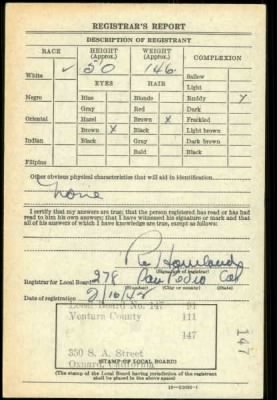 REGISTRAR'S REPORT
DESCRIPTION OF REGISTRANT
RACE HEIGHT (Approx.) WEIGHT (Approx.) COMPLEXION
White ✓ 50 146 Sallow
EYES HAIR Light
Negro Blue Blonde Ruddy ✓
Gray Red Dark
Oriental Hazel Brown X Freckled
Brown X Black Light brown
Indian Black Gray Dark brown
Bald Black
Filipino
Other obvious physical characteristics that will aid in identification
None
I certify that my answers are true; that the person registered has read or has had
read to him his own answers; that I have witnessed his signature or mark and that
all of his answers of which I have knowledge are true, except as follows:
(Signature of registrar)
Registrar for Local Board 278 San Pedro Cal
(Number) (City or county) (State)
Date of registration 2/16/42
Local Board No. 147 91
Ventura County 111
147
350 S. A. Street
Oxnard, California
(STAMP OF LOCAL BOARD)
(The stamp of the Local Board having jurisdiction of the registrant
shall be placed in the above space)
147